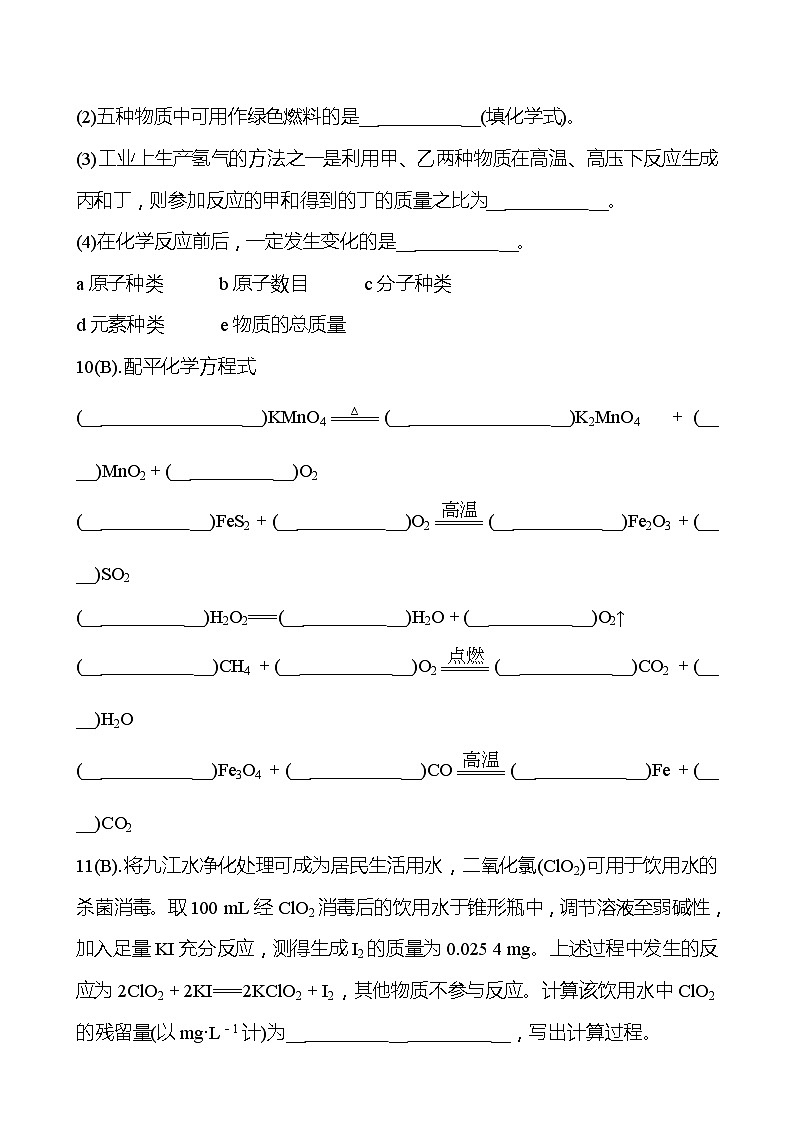 (2)五种物质中可用作绿色燃料的是__ __________ __(填化学式)。
(3)工业上生产氢气的方法之一是利用甲、乙两种物质在高温、高压下反应生成
丙和丁，则参加反应的甲和得到的丁的质量之比为__ __________ __。
(4)在化学反应前后，一定发生变化的是__ __________ __。
a 原子种类 b 原子数目 c 分子种类
d 元素种类 e 物质的总质量
10(B).配平化学方程式
(__ ______________ __)KMnO4 =△= (__ ______________ __)K2MnO4 + (__
__)MnO2 + (__ __________ __)O2
(__ __________ __)FeS2 + (__ __________ __)O2 =高温= (__ __________ __)Fe2O3 + (__
__)SO2
(__ __________ __)H2O2===(__ __________ __)H2O + (__ __________ __)O2↑
(__ __________ __)CH4 + (__ __________ __)O2 =点燃= (__ __________ __)CO2 + (__
__)H2O
(__ __________ __)Fe3O4 + (__ __________ __)CO =高温= (__ __________ __)Fe + (__
__)CO2
11(B).将九江水净化处理可成为居民生活用水，二氧化氯(ClO2)可用于饮用水的
杀菌消毒。取 100 mL 经 ClO2 消毒后的饮用水于锥形瓶中，调节溶液至弱碱性，
加入足量 KI 充分反应，测得生成 I2 的质量为 0.025 4 mg。上述过程中发生的反
应为 2ClO2 + 2KI===2KClO2 + I2，其他物质不参与反应。计算该饮用水中 ClO2
的残留量(以 mg·L－1 计)为__ __________ __ __________ __，写出计算过程。